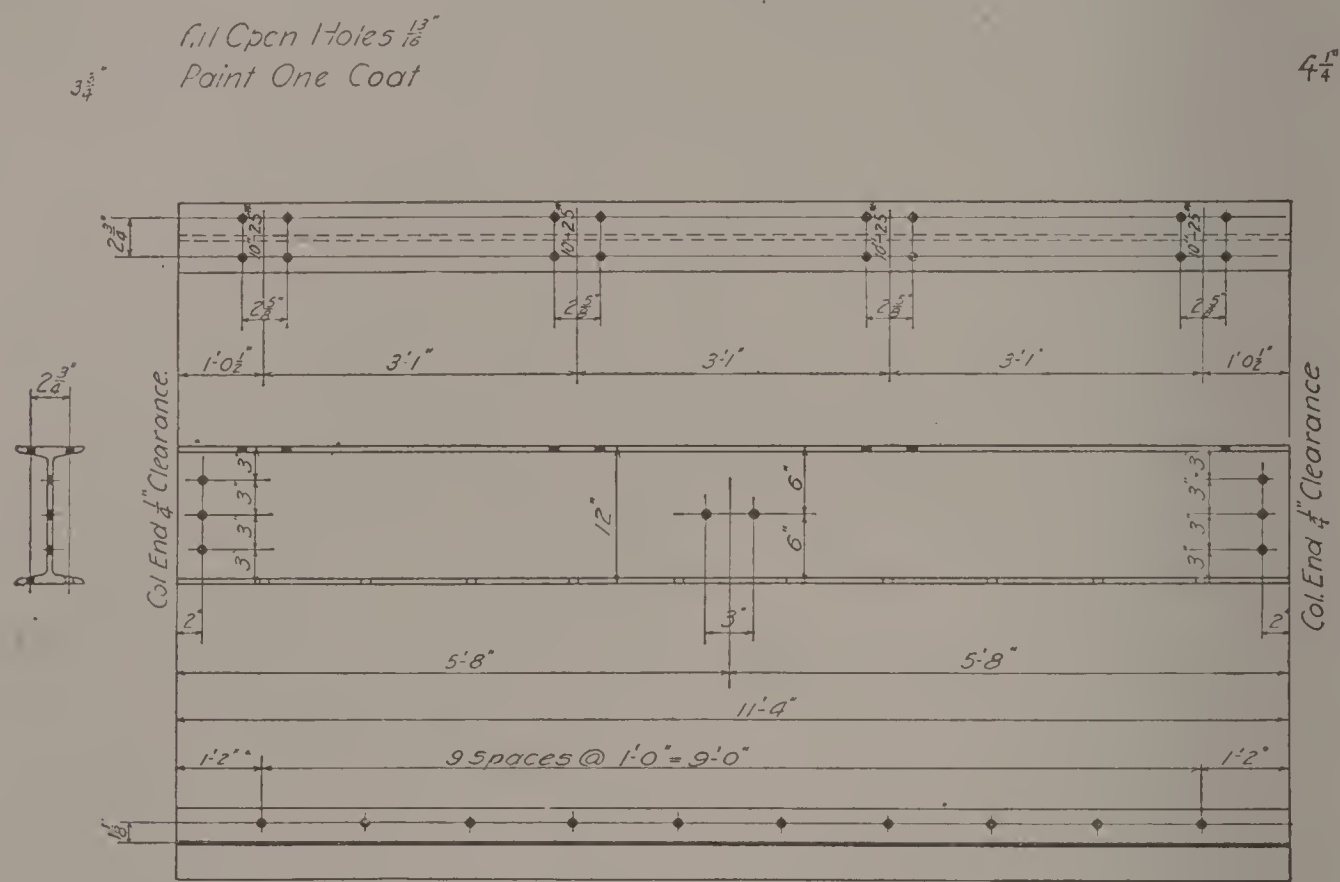 Open Holes 13/16"
Paint One Coat
3 3/4"
4 1/4"
2 3/4"
10"-25#
10"-25#
10"-25#
10"-25#
1'-0 1/2"
3'-1"
3'-1"
3'-1"
1'-0 1/2"
2 3/4"
Col End 1/4" Clearance.
3"
3"
3"
3"
12"
6"
6"
3"-3"
3"
3"
Col. End 1/4" Clearance
2"
3"
2"
5'-8"
5'-8"
11'-4"
1'-2"
9 Spaces @ 1'-0" = 9'-0"
1'-2"
1 1/8"